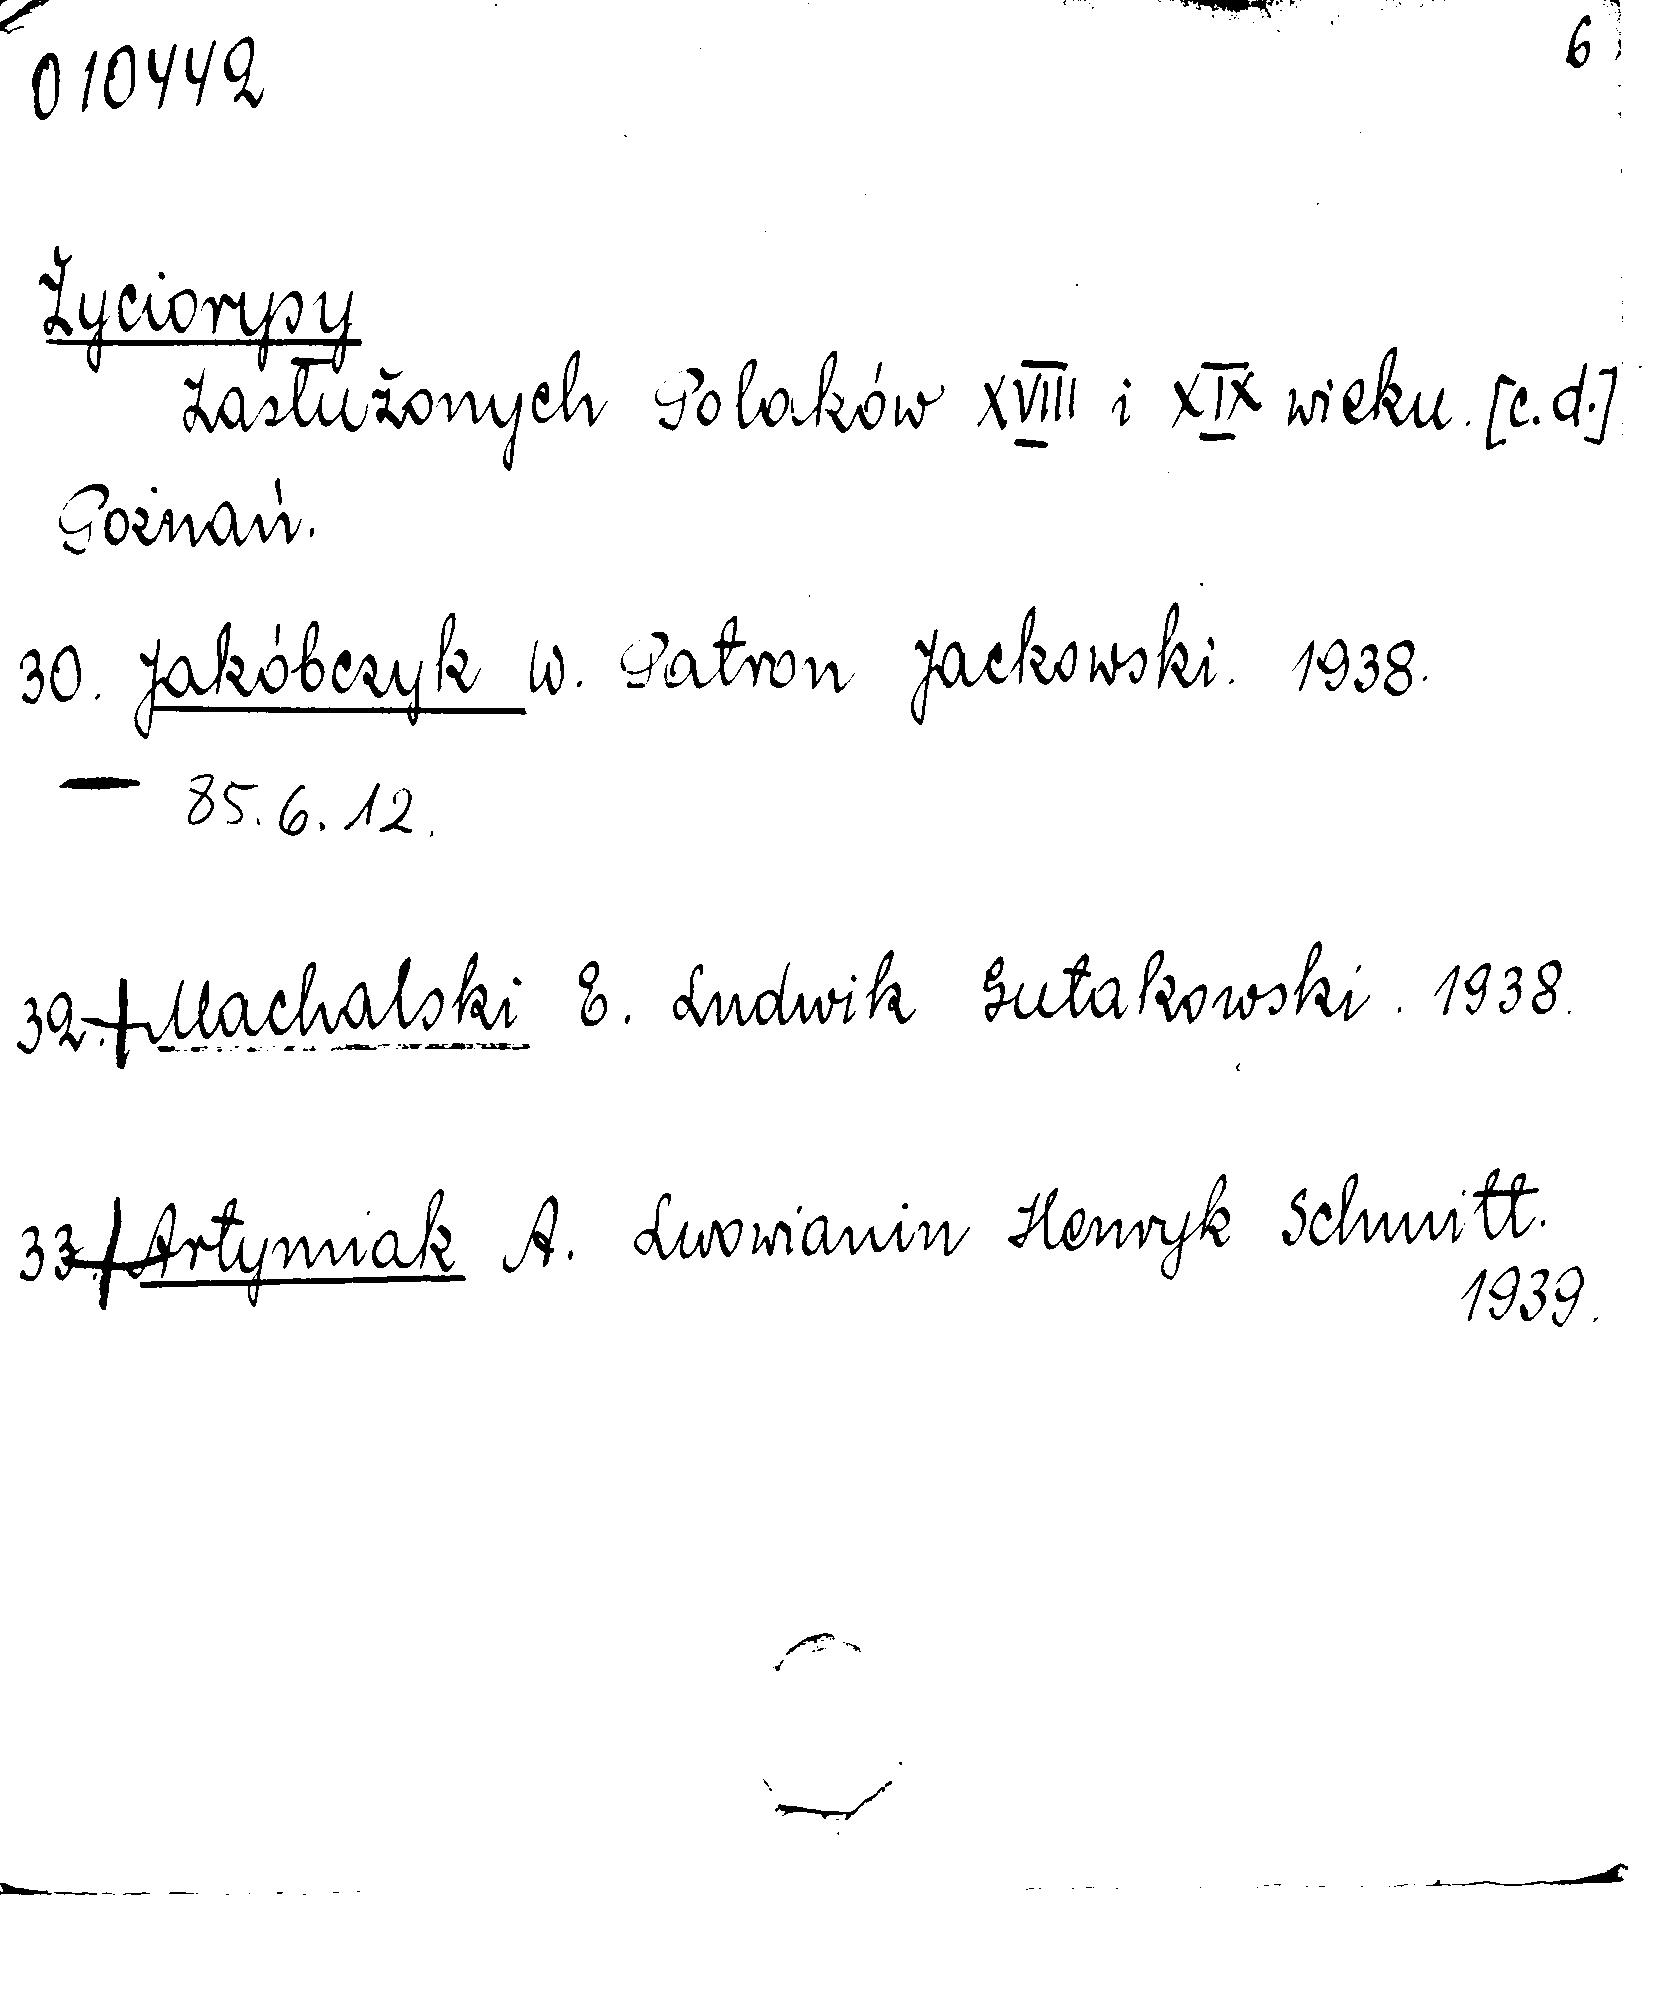 010442
6
Życiorysy
zasłużonych Polaków XVIII i XIX wieku. [c.d.]
Poznań.
30. Jakóbczyk W. Patron Jackowski. 1938.
— 85.6.12.
32. + Machalski E. Ludwik Gutakowski. 1938.
33. + Artymiak A. Lwowianin Henryk Schmitt.
1939.